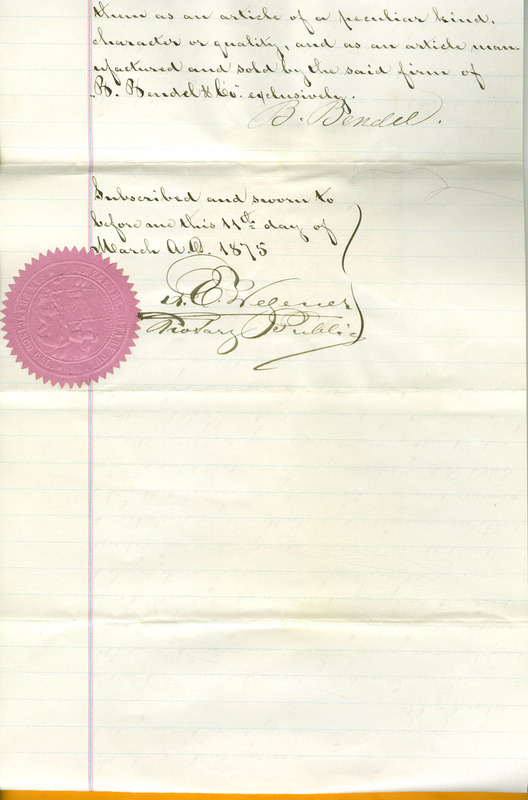 them as an article of a peculiar kind,
character or quality, and as an article man
ufactured and sold by the said firm of
B. Bendel & Co. exclusively.
B. Bendel.
Subscribed and sworn to
before me this 11th day of
March A.D. 1875
E Wegener
Notary Public